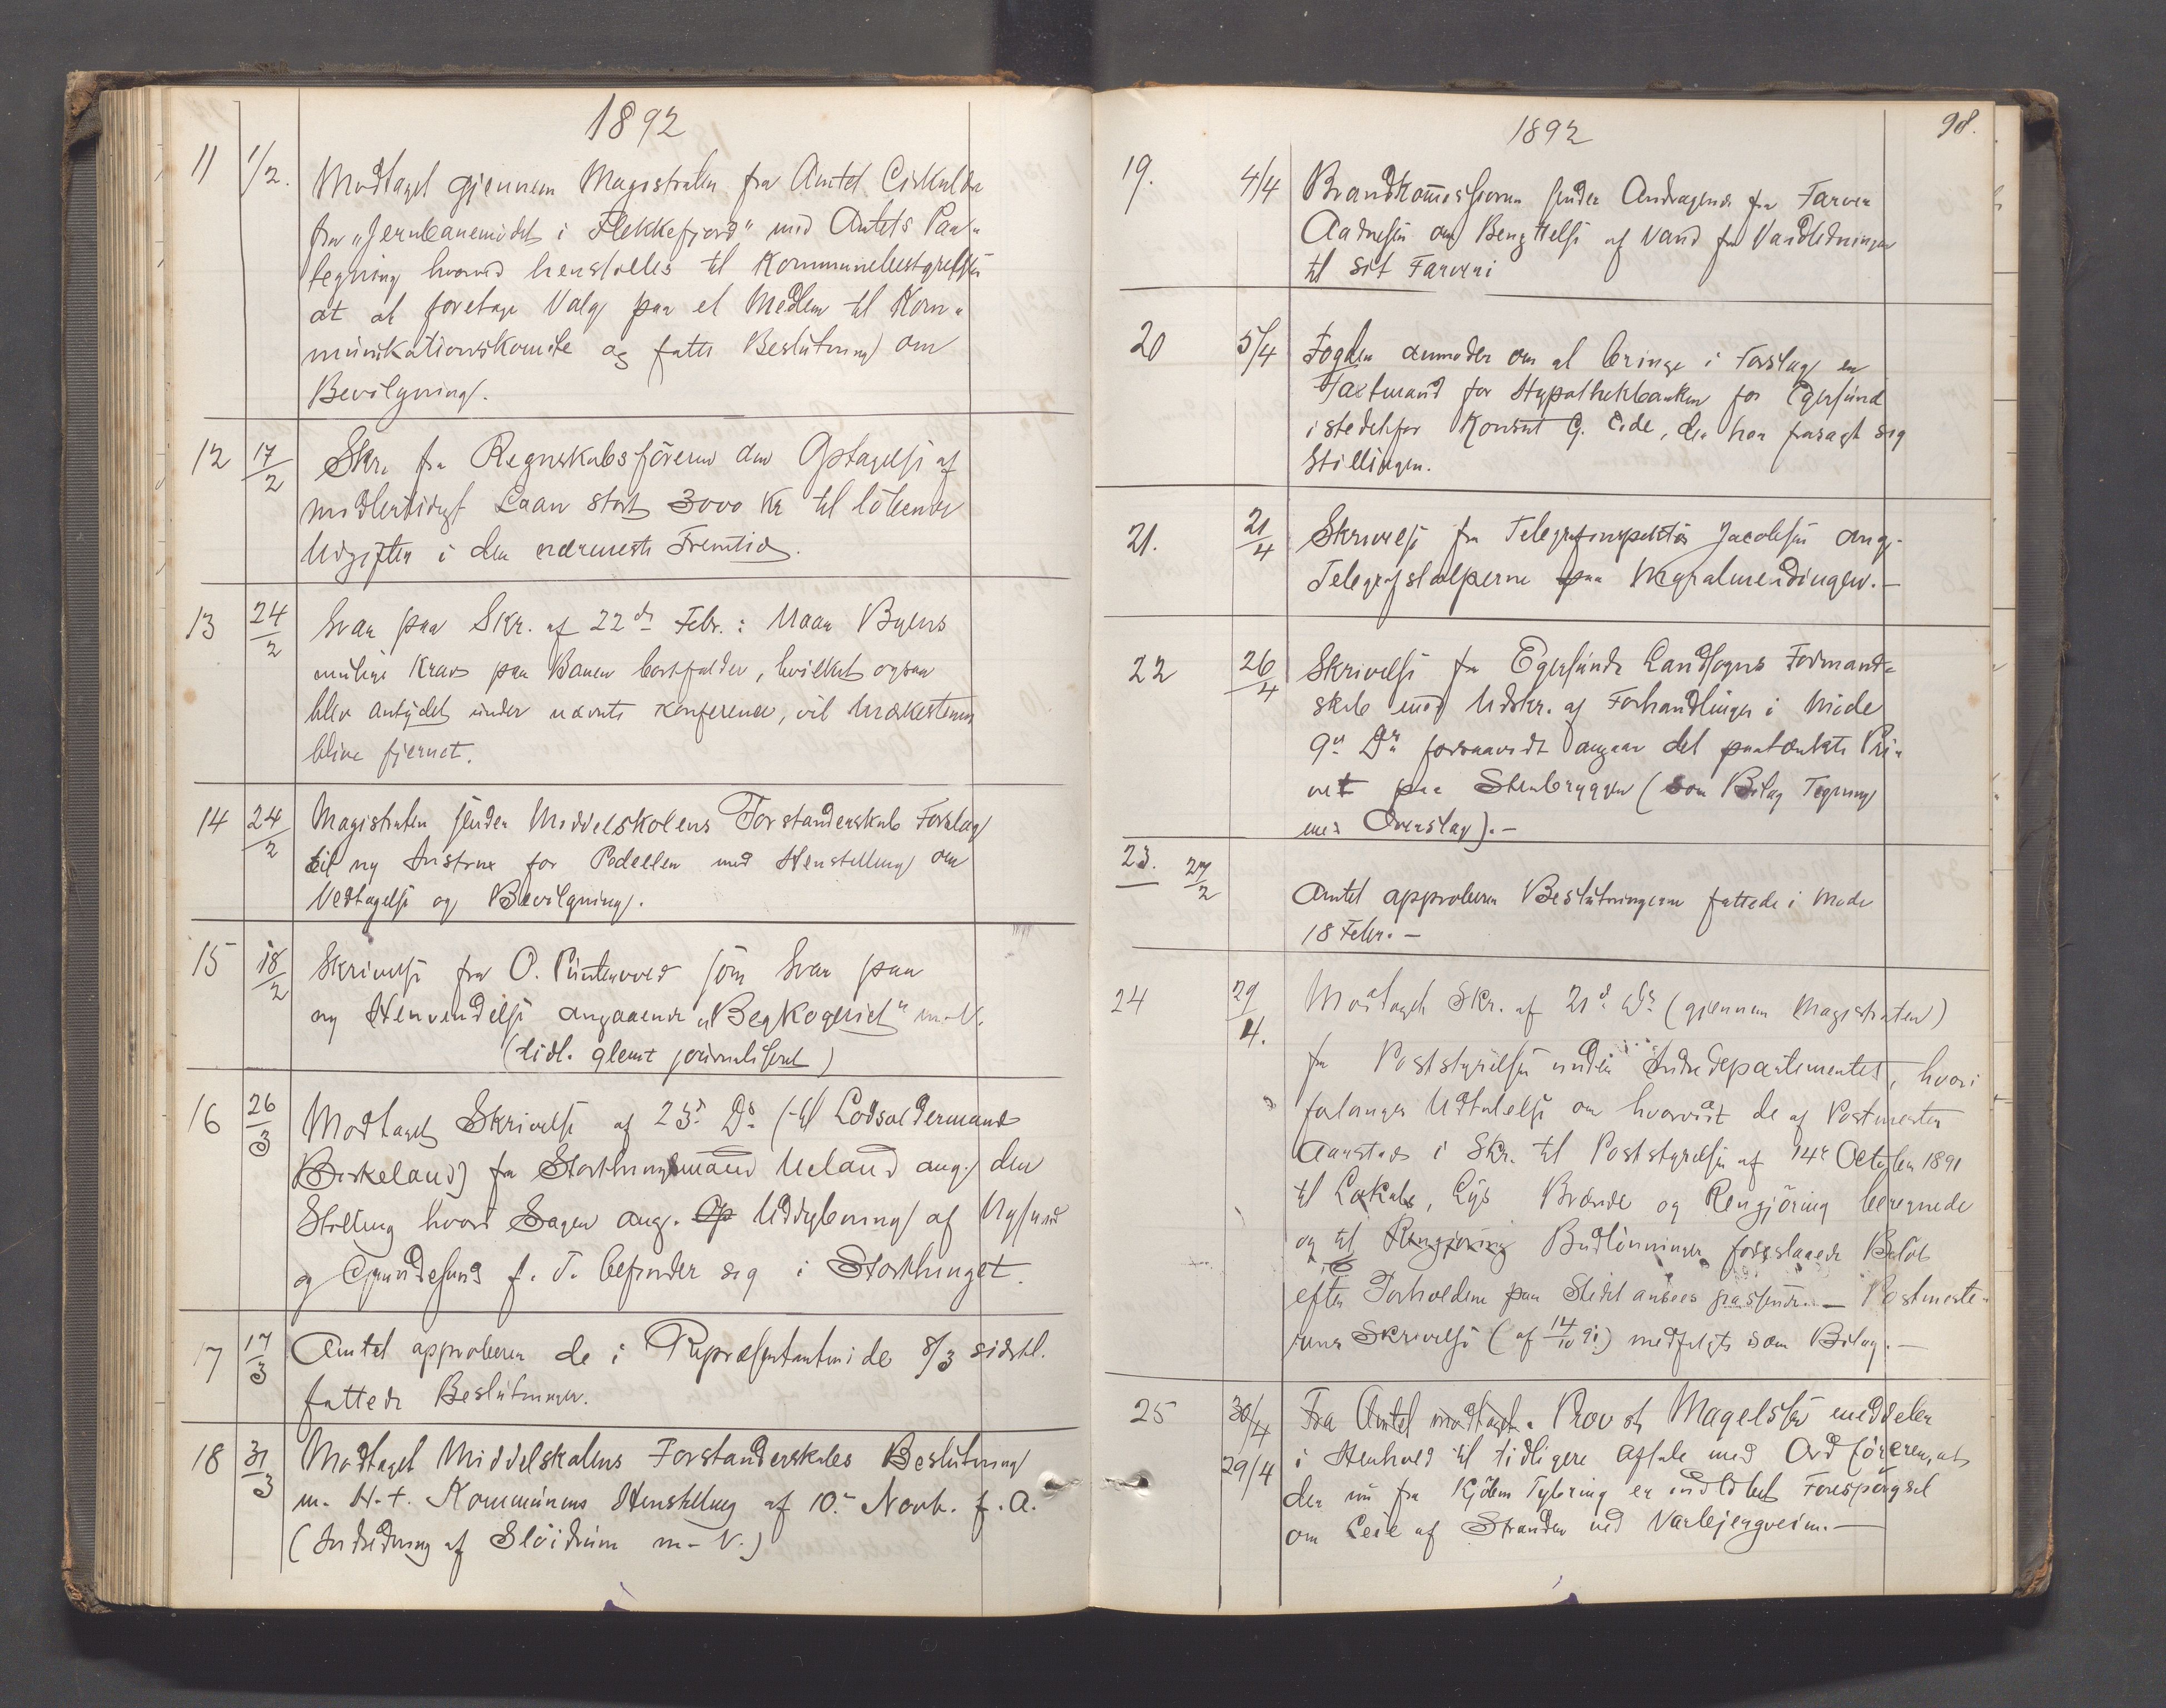 1892
11 1/2. Modtaget gjennem Magistraten fra Amtet Cirkulære
fra "Jernbanemödet i Flekkefjord" med Amtets Paa-
tegning hvorved henstilles til Kommunebestyrelsen
at at foretage Valg paa et Medlem til Kom-
munikationskomite og fatte Beslutning om
Bevilgning.
12 17/2 Skr. fra Regnskabsföreren om Optagelse af
midlertidigt Laan stort 3000 Kr til löbende
Udgifter i den nærmeste Fremtid.
13 24/2 Svar paa Skr. af 22de Febr.: Naar Byens
mulige Krav paa Banen bortfalder, hvilket ogsaa
blev antydet under nævnte Konference, vil
blive fjernet.
14 24/2 Magistraten sender Middelskolens Forstanderskabs Forslag
til ny Instrux for Pedellen med Henstilling om
Vedtagelse og Bevilgning.
15 18/2 Skrivelse fra O. Puntervold som Svar paa
ny Henvendelse angaaende "Begkogeriet" m. V.
(tidl. glemt journaliseret)
16 26/3 Modtaget Skrivelse af 23d Ds. (til Lodsoldermand
Birkeland) fra Storthingsmand Ueland ang. den
Stilling hvori Sagen ang. Op Uddybning af Nysund
og Grundesund f. T. befinder sig i Storthinget.
17 17/3 Amtet approberer de i Repræsentantmöde 8/3 sidstl.
fattede Beslutninger.
18 31/3 Modtaget Middelskolens Forstanderskabs Beslutning
m. H. t. Kommunens Henstilling af 10. Novb. f. A.
(Indredning af Slöidrum m. V.)
1892 98.
19. 4/4 Brandkommissionen sender Andragende fra Farver
Aadnesen om Benyttelse af Vand fra Vandledningen
til sit Farveri
20 5/4 Fogden anmoder om at bringe i Forslag en
Taxtmand for Hypothekbanken for Egersund
istedetfor Konsul G. Eide, der har frasagt sig
Stillingen.
21. 21/4 Skrivelse fra Telegrafinspektör Jacobsen ang.
Telegrafstolperne paa Nygralmendingen.—
22 26/4 Skrivelse fra Egersunds Landsogns Formand-
skab med Udskr. af Forhandlinger i Möde
9de Ds. forsaavidt angaar det paatænkte Pri-
vet paa Stenbryggen (som Bilag Tegning
med Overslag).—
23. 27/2 Amtet approberer Beslutningerne fattede i Möde
18 Febr.—
24 29/4. Modtaget Skr. af 21d Ds. (gjennem Magistraten)
fra Poststyrelsen under Indredepartementet, hvori
forlanges Udtalelse om hvorvidt de af Postmester
Aanstad i Skr. til Poststyrelsen af 14de October 1891
til Lokale, Lys Brænde og Rengjöring beregnede
og til Rengjöring Budlönninger foreslaaede Belöb
efter Forholdene paa Stedet ansees passende.— Postmeste-
rens Skrivelse (af 14/10 91) medfulgte som Bilag.—
25 30/4 Fra Amtet modtaget. Provst Magelssen meddeler
29/4 i Henhold til tidligere Aftale med Ordföreren, at
der nu fra Kjöbm Tybring er indlöbet Forespörgsel
om Leie af Stranden ved —